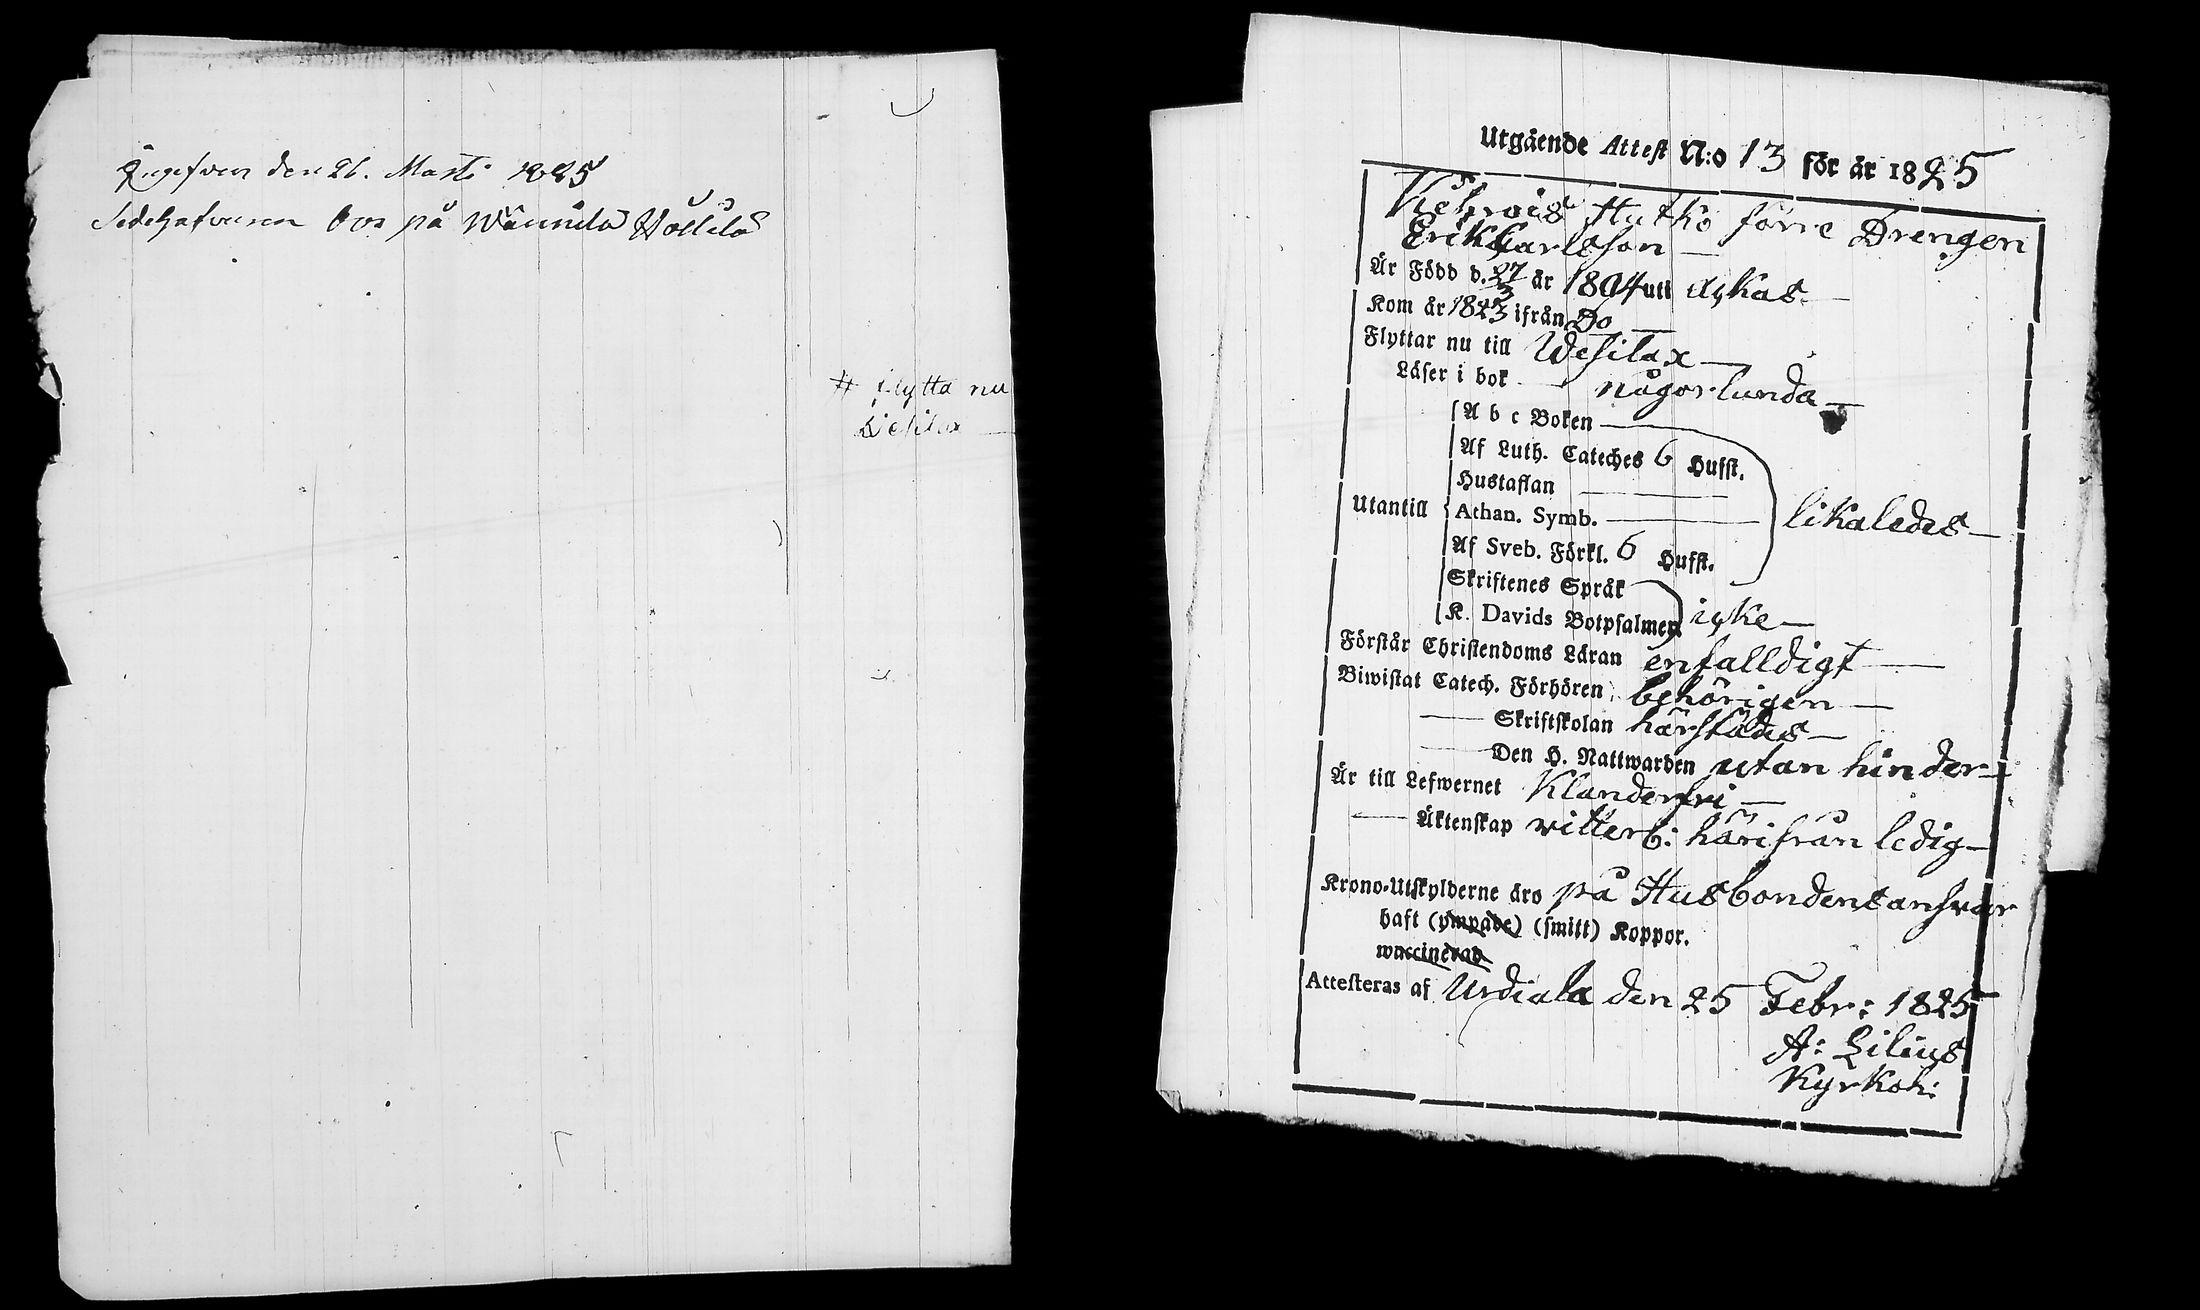 Ingifven den 26. Marti 1825
Sedelgifvaren bor på Wännilä Hollila
# flytta nu
Wesilax
Utgående Attest N:o 13 för år 1825
Kehrois Hutko förre Drengen
Erik Carlsson
Är Född d. 27/3 år 1804 uti Ackas
Kom år 1823 ifrån Do
Flyttar nu till Wesilax
Läser i bok någorlunda
A b c Boken
Af Luth. Cateches 6 Hufst.
Hustaflan
Utantill Athan. Symb. likaledes
Af Sveb. Förkl. 6 Hufst.
Skriftenes Språk
K. Davids Botpsalmer icke
Förstår Christendoms Läran enfalldigt
Biwistat Catech. Förhören behörigen
Skriftskolan härstädes
Den H. Nattwarden utan hinder
Är till Lefwernet Klanderfri
Äktenskap witterl: härifrån ledig
Krono-Utskylderne äro på Husbondens answar
haft (ympade) (smitt) Koppor.
waccinerad
Attesteras af Urdiala den 25 Febr: 1825
A: Lilius
Kyrkoh: